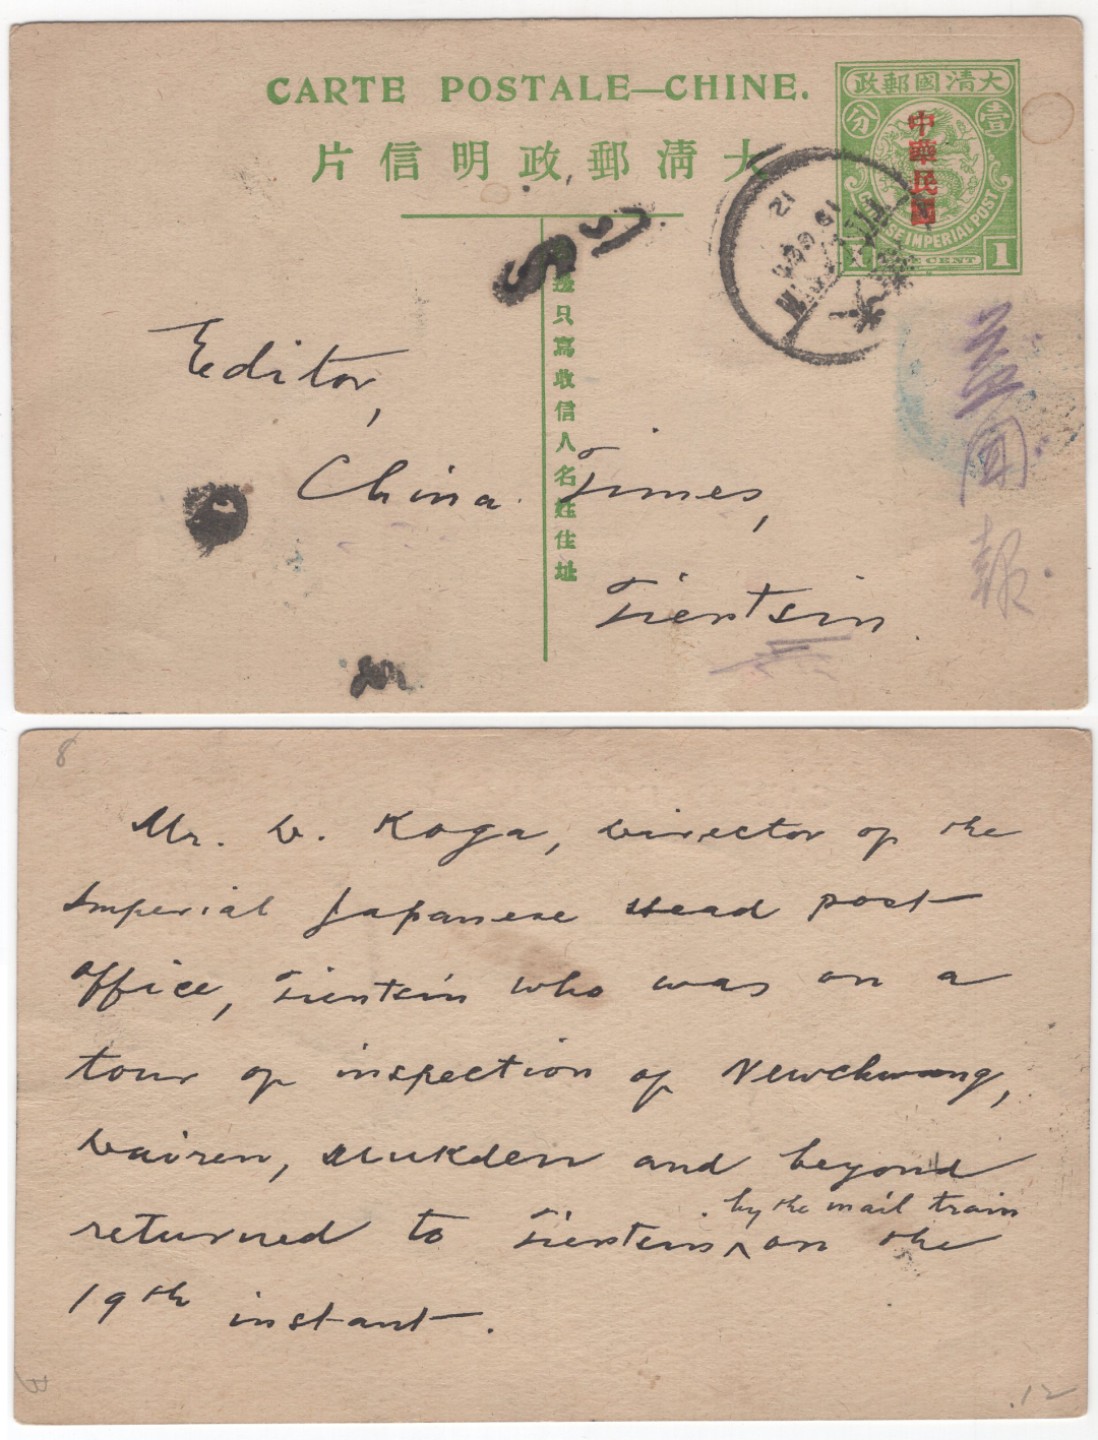 CARTE POSTALE—CHINE.
片信明政郵清大
政郵國清大
分
壹
中華民國
CHINESE IMPERIAL POST
1 ONE CENT 1
12
19
只寫收信人名姓住址
Editor,
China Times,
Tientsin.
益聞報
8
Mr. D. Koga, Director of the
Imperial Japanese Head post
office, Tientsin who was on a
tour of inspection of Newchwang,
Dairen, Mukden and beyond
by the mail train
returned to Tientsin, ^ on the
19th instant.
.12